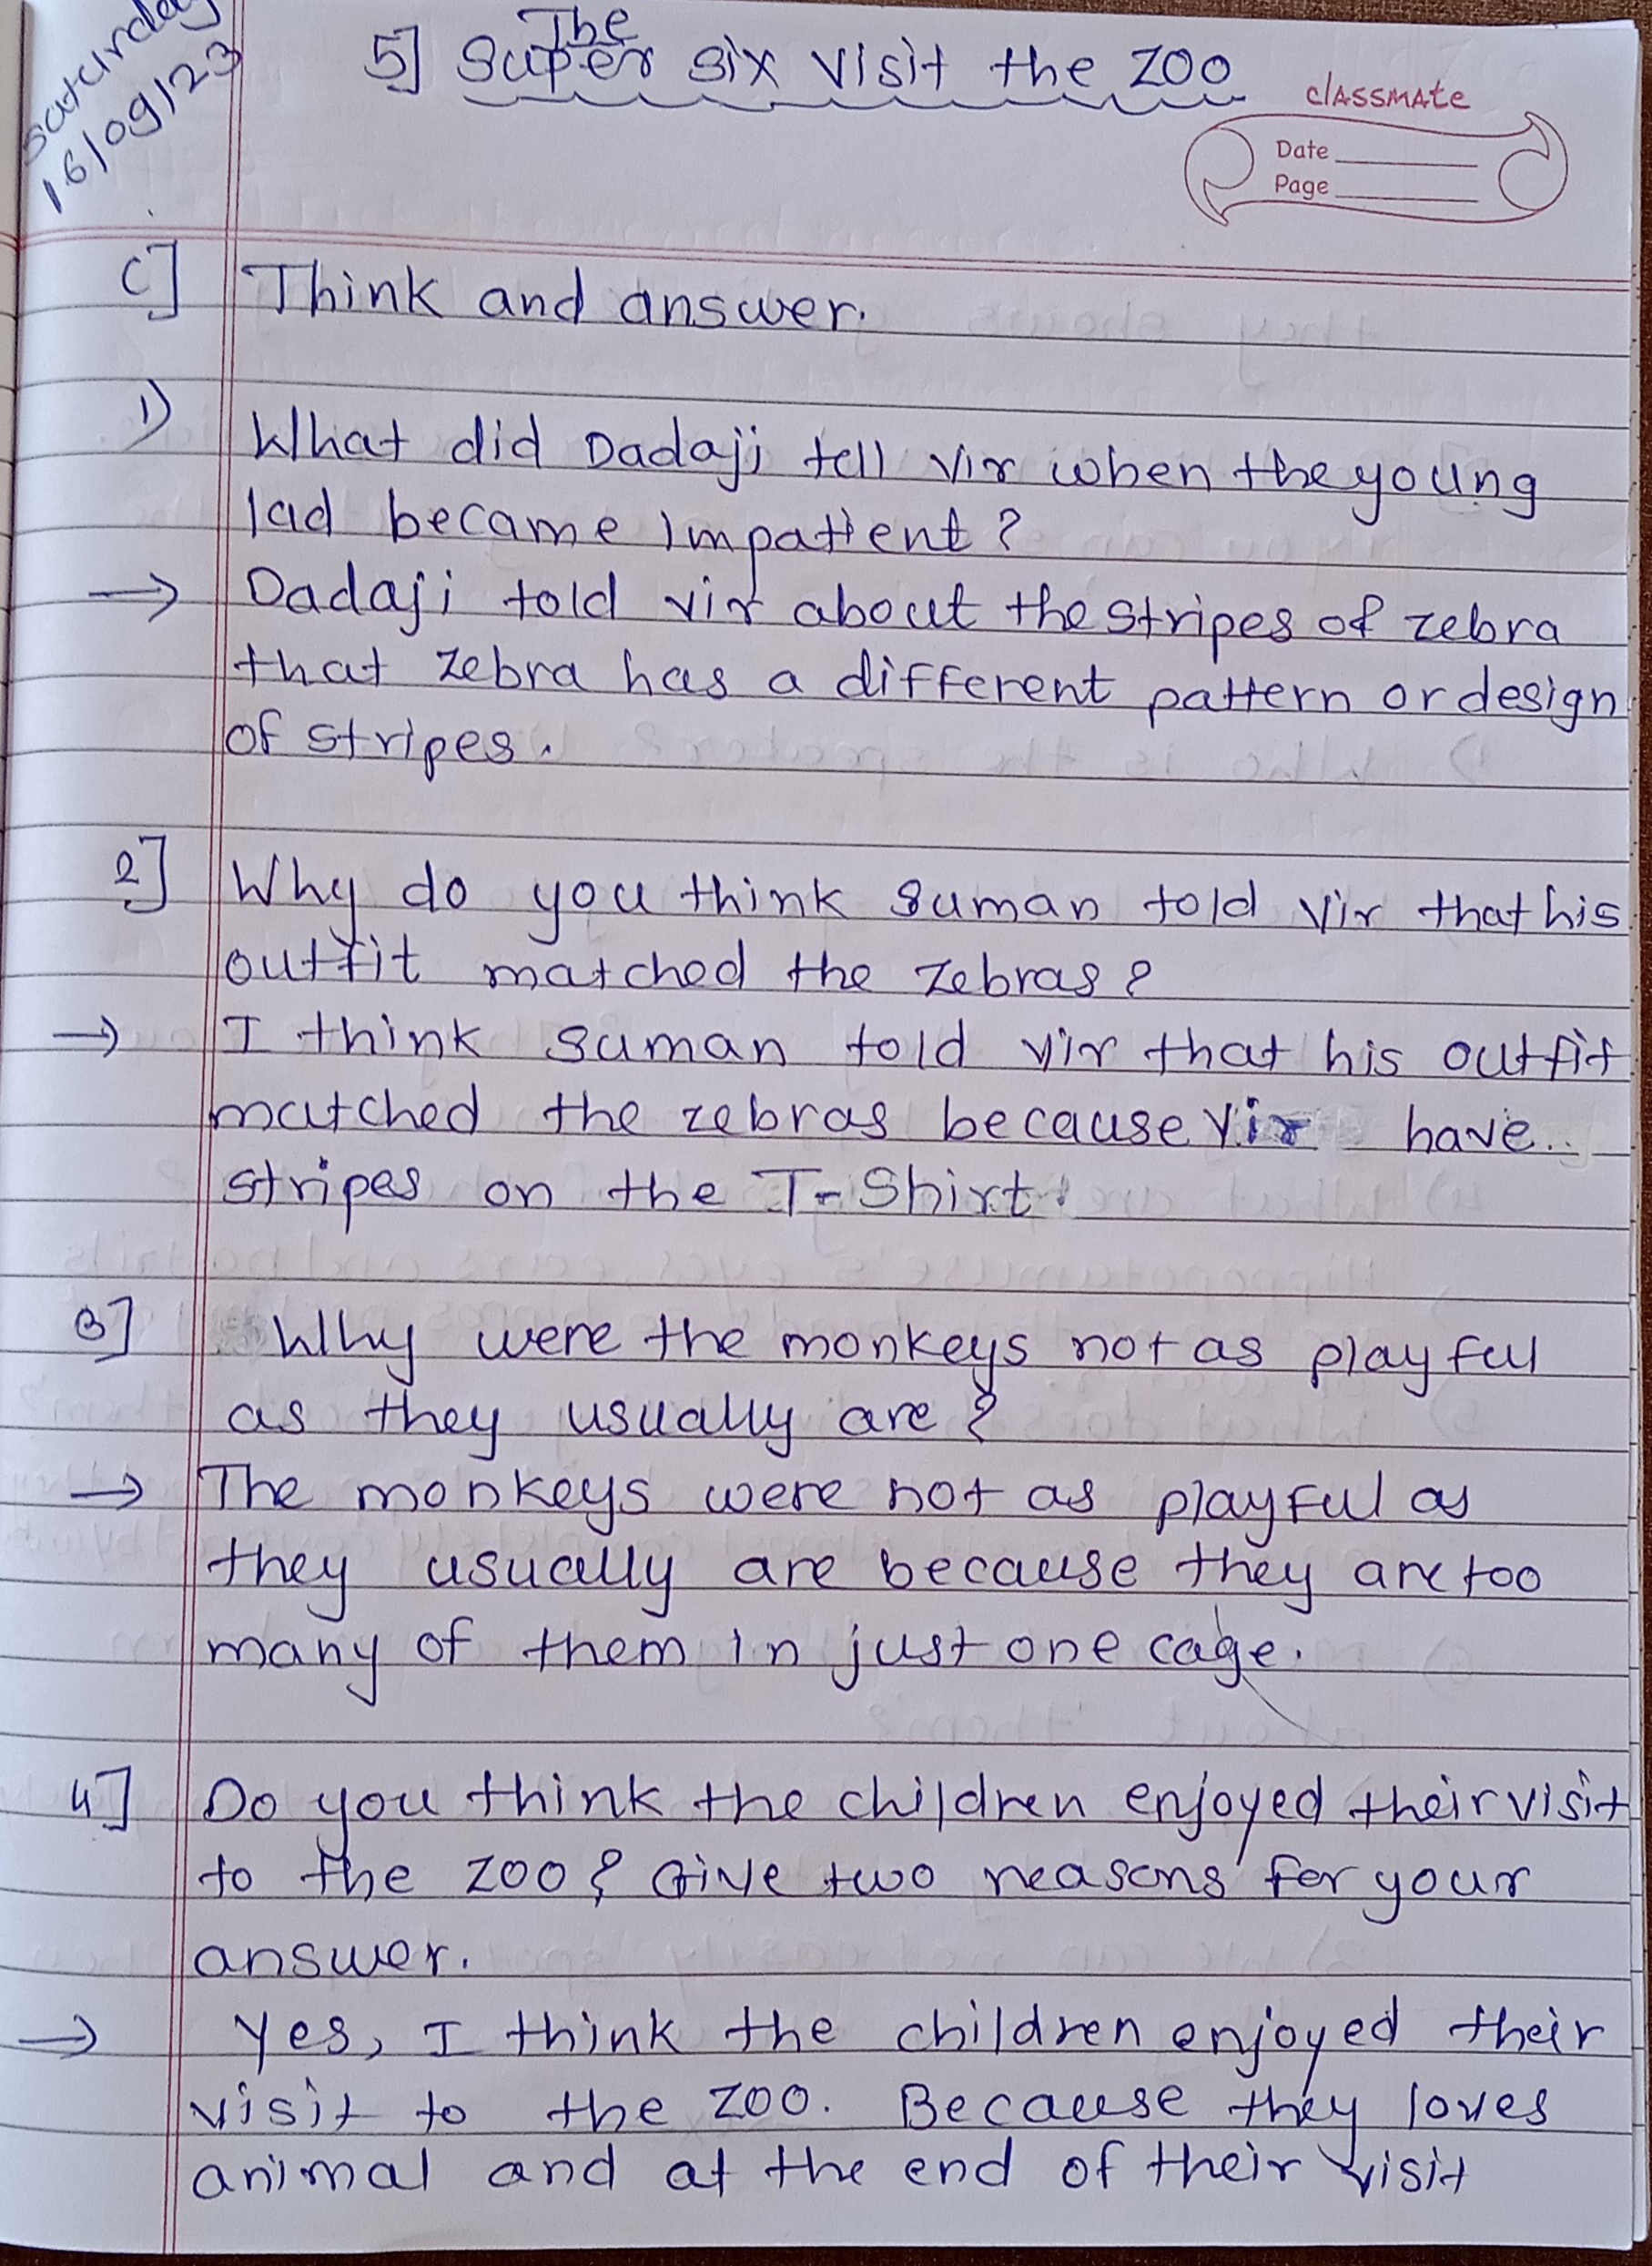 Saturday
16/09/23
The
5] Super six visit the zoo
classmate
Date
Page
C] Think and answer.
1) What did Dadaji tell vir when the young
lad became impatient?
→ Dadaji told vir about the stripes of zebra
that zebra has a different pattern or design
of stripes.
2] Why do you think suman told vir that his
outfit matched the zebras?
→ I think suman told vir that his outfit
matched the zebras because vir have
stripes on the T-Shirt.
3] Why were the monkeys not as playful
as they usually are?
→ The monkeys were not as playful as
they usually are because they are too
many of them in just one cage.
4] Do you think the children enjoyed their visit
to the zoo? Give two reasons for your
answer.
→ Yes, I think the children enjoyed their
visit to the zoo. Because they loves
animal and at the end of their visit